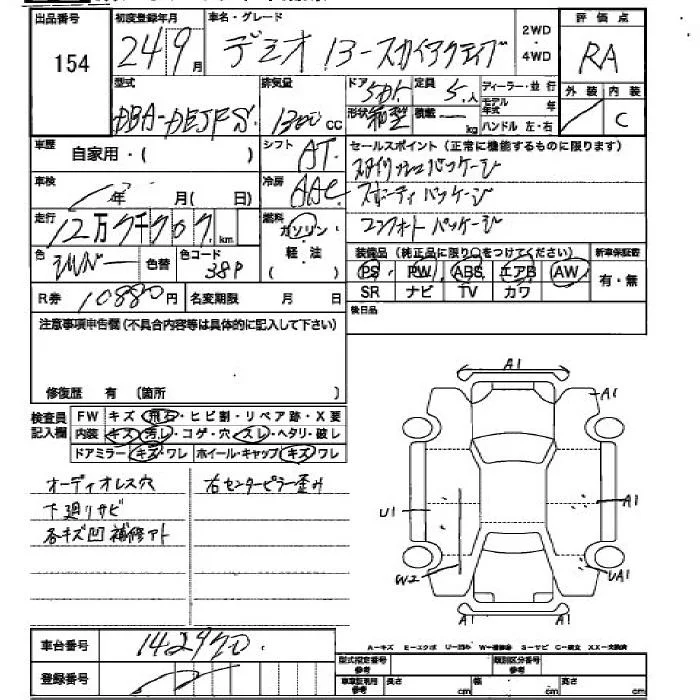 出品番号 初度登録年月 車名・グレード 2WD ・ 4WD 評価点
154 24 9月 デミオ 13-スカイアクティブ RA
型式 排気量 ドア 5Dr. 定員 5人 ディーラー・並行 外装 内装
DBA-DEJFS. 1300cc 形状 箱型 積載 ー kg モデル年式 年 ハンドル 左・右 C
車歴 自家用・( ) シフト AT. セールスポイント(正常に機能するものに限ります)
車検 年 月( 日) 冷房 AAC スタイリッシュパッケージ
スポーティパッケージ
走行 12万 km 燃料 ガソリン・軽・注( ) コンフォートパッケージ
色 シルバー 色替 色コード 38P 装備品(純正品に限り○をつけてください) 新車保証書
PS PW ABS エアB AW 有・無
R券 10880円 名変期限 月 日 SR ナビ TV カワ
注意事項申告欄(不具合内容等は具体的に記入して下さい) 後日品
修復歴 有 〔箇所 〕
検査員記入欄 FW キズ・飛石・ヒビ割・リペア跡・X要
内装 キズ・汚し・コゲ・穴・スレ・ヘタリ・破し
ドアミラー キズ・ワレ ホイール・キャップ キズ・ワレ
オーディオレス穴 右センターピラー歪み
下廻りサビ
各キズ凹補修アト
A1
A1
U1 A1
W2 UA1
A1 A1
車台番号 142970.
A-キズ E-エクボ U-凹み W-補修跡 S-サビ C-腐食 XX-交換済
登録番号 型式指定番号 参考 類別区分番号 参考
車車証明用 参考 長さ cm 幅 cm 高さ cm